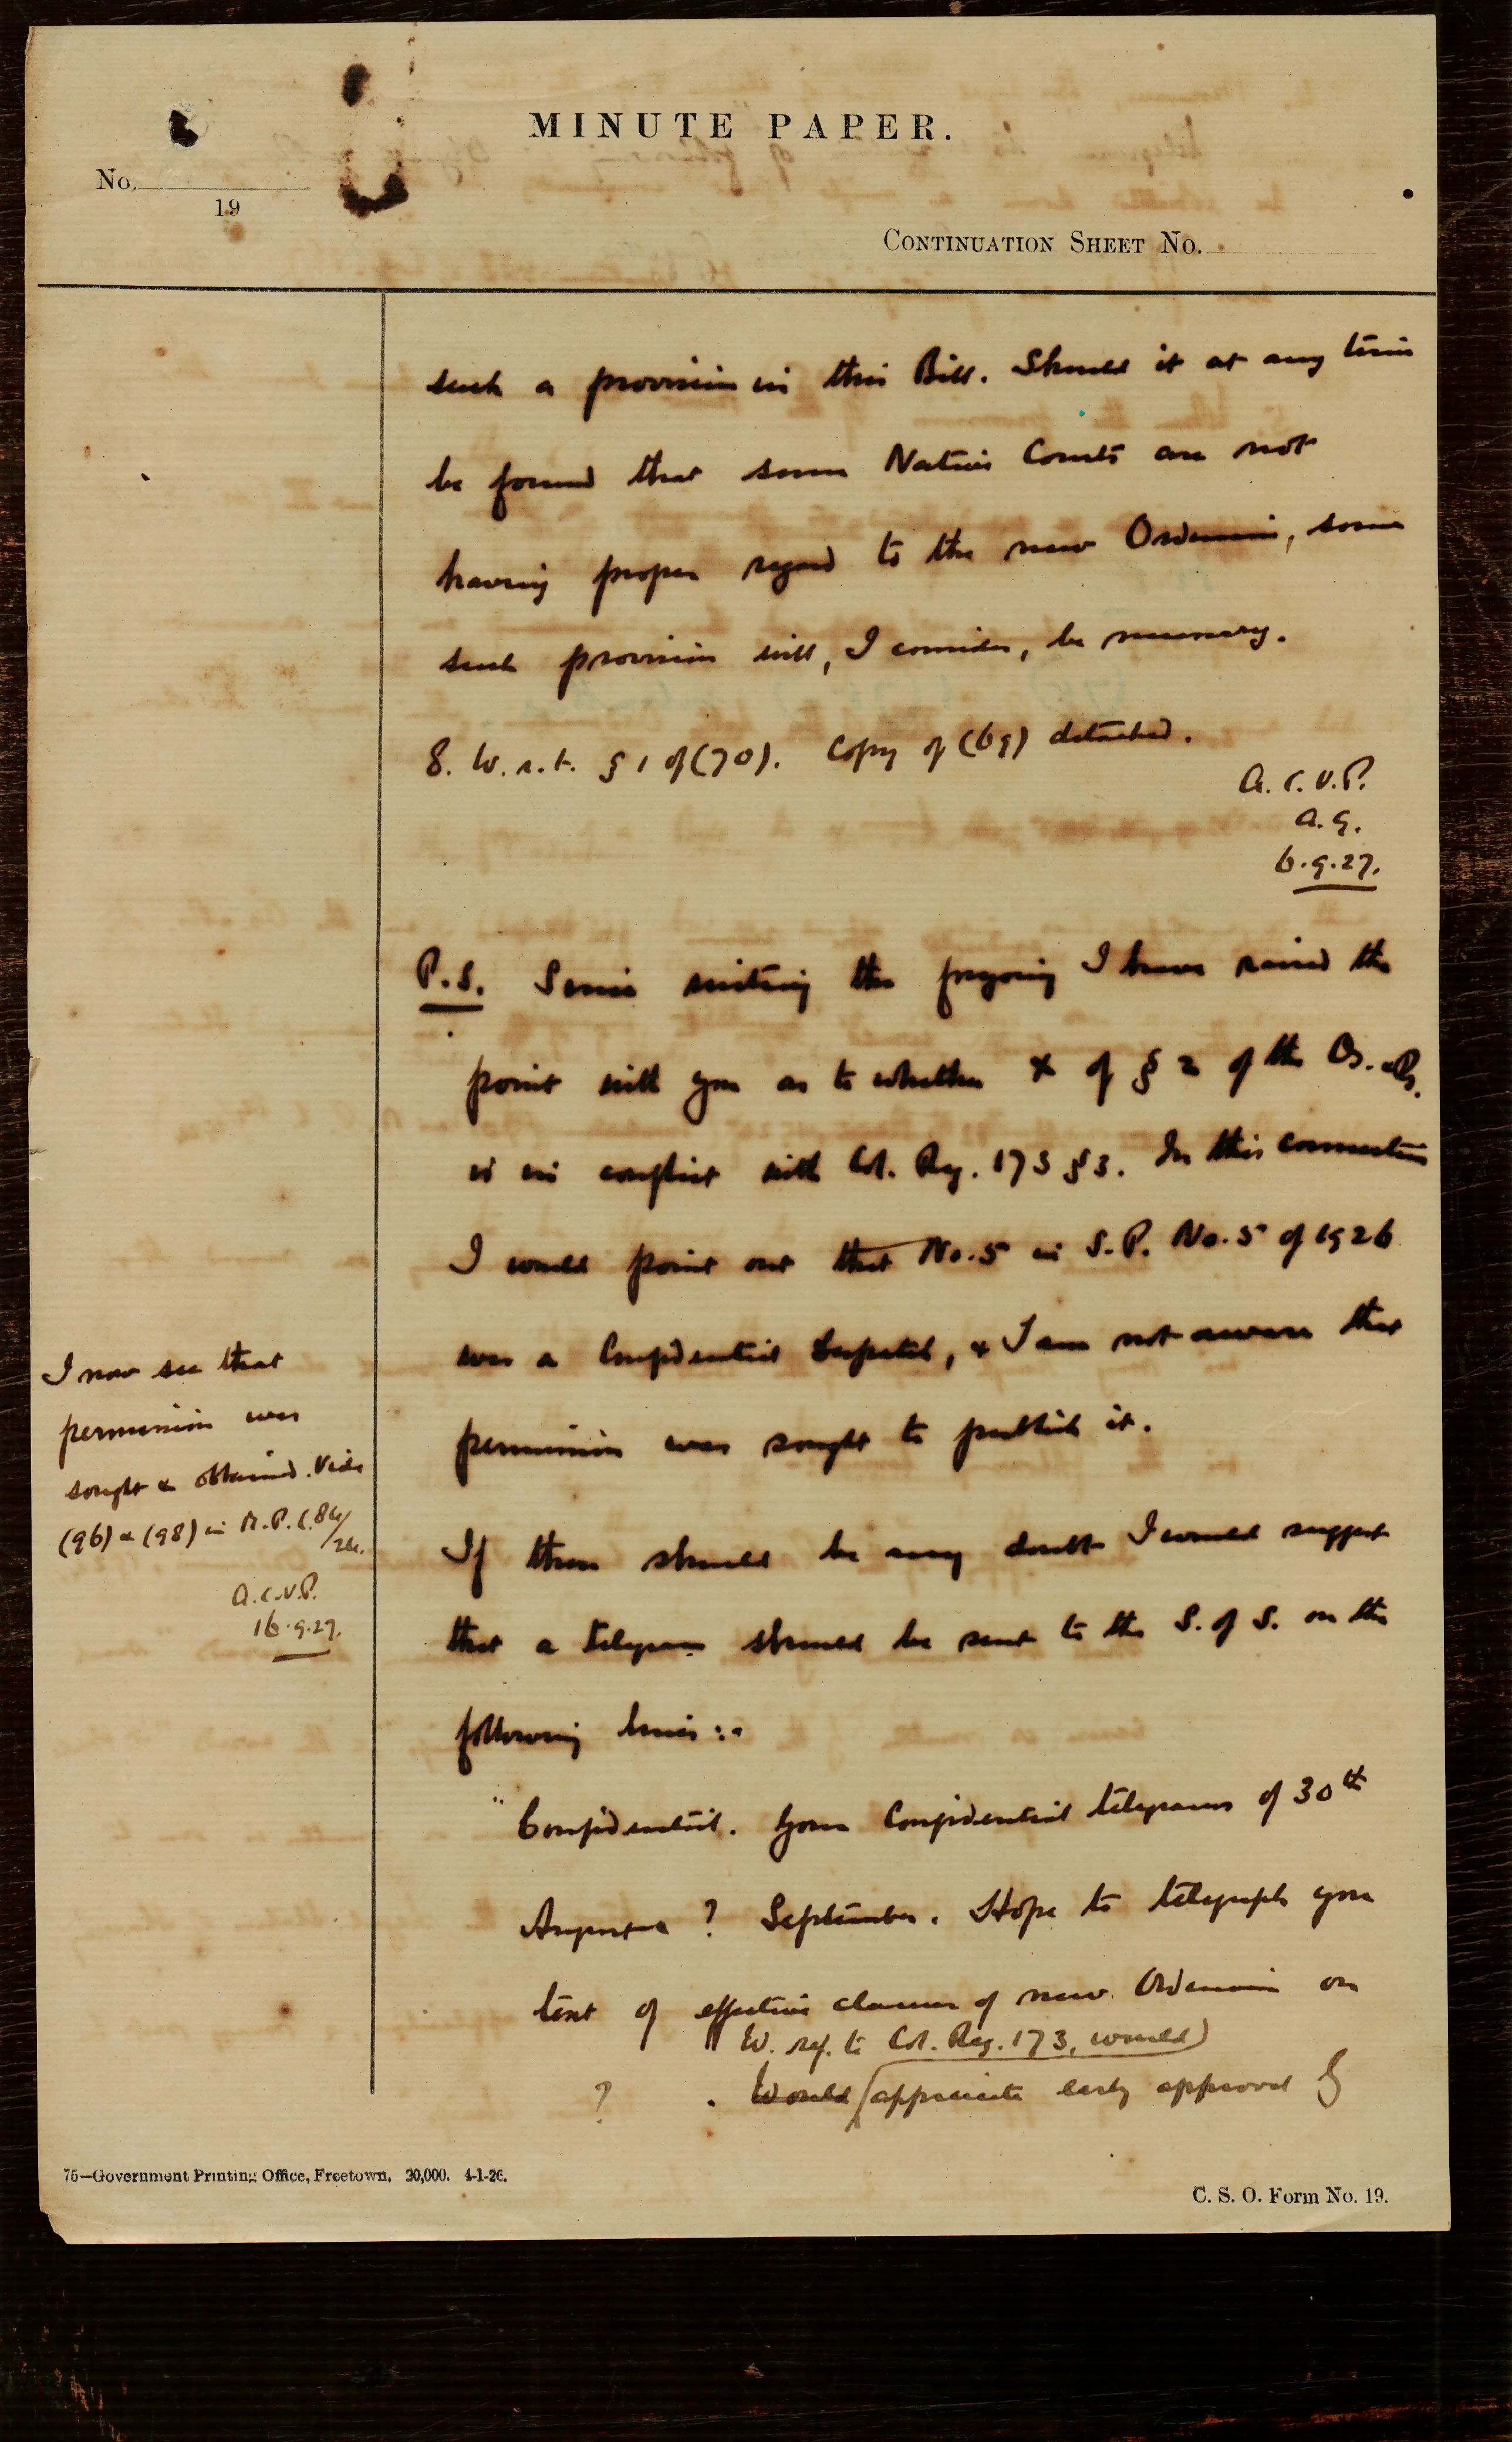 MINUTE PAPER.
No.
19
CONTINUATION SHEET NO.
such a provision in this Bill. Should it at any time
be found that some Native Courts are not
having proper regard to the new Ordinance, some
such provision will, I consider, be necessary.
8. W.r.t. § 1 of (70). Copy of (69) detached.
A.C.V.P.
A.G.
6.9.27.
P.S. Since writing the foregoing I have raised the
point with you as to whether X of § 2 of the
is in conflict with Col. Reg. 173 § 3. In this connection
I would point out that No. 5 in S.P. No. 5 of 1926
was a Confidential Despatch, & I am not aware that
permission was sought to publish it.
I now see that
permission was
sought & obtained. Vide
(96) & (98) in M.P. C.84/
24.
A.C.V.P.
16.9.27.
If there should be any doubt I would suggest
that a telegram should be sent to the S. of S. on the
following lines:-
"Confidential. Your Confidential telegrams of 30th
August & ? September. Hope to telegraph you
text of effective clauses of new Ordinance on
W. ref. to Col. Reg. 173, would
? . Would appreciate early approval of
75—Government Printing Office, Freetown. 20,000. 4-1-26.
C. S. O. Form No. 19.